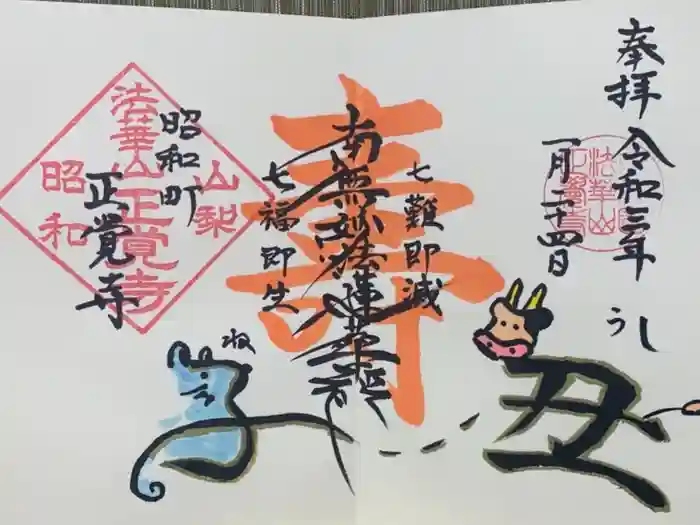 奉拝
令和三年 うし
一月二十四日
七難即滅
南無妙法蓮華経
寿
七福即生
昭和町
正覚寺
山梨
法華山正覚寺
昭和
丑
子